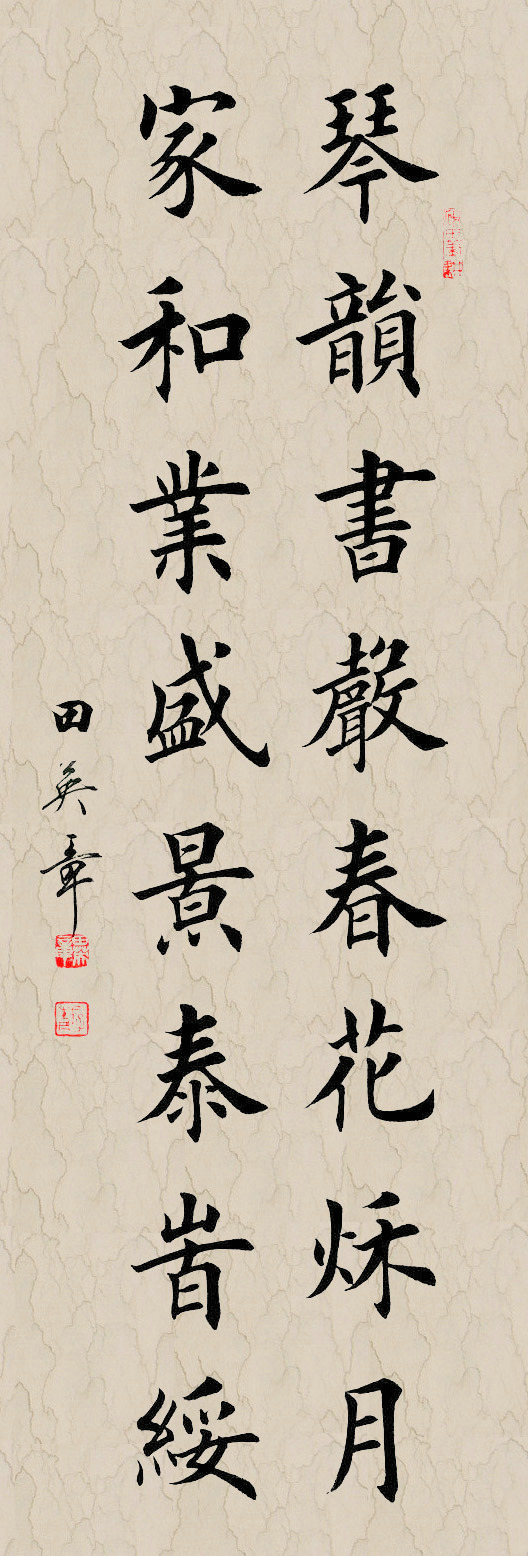 琴韻書聲春花秌月
家和業盛景泰旹綏
田英章